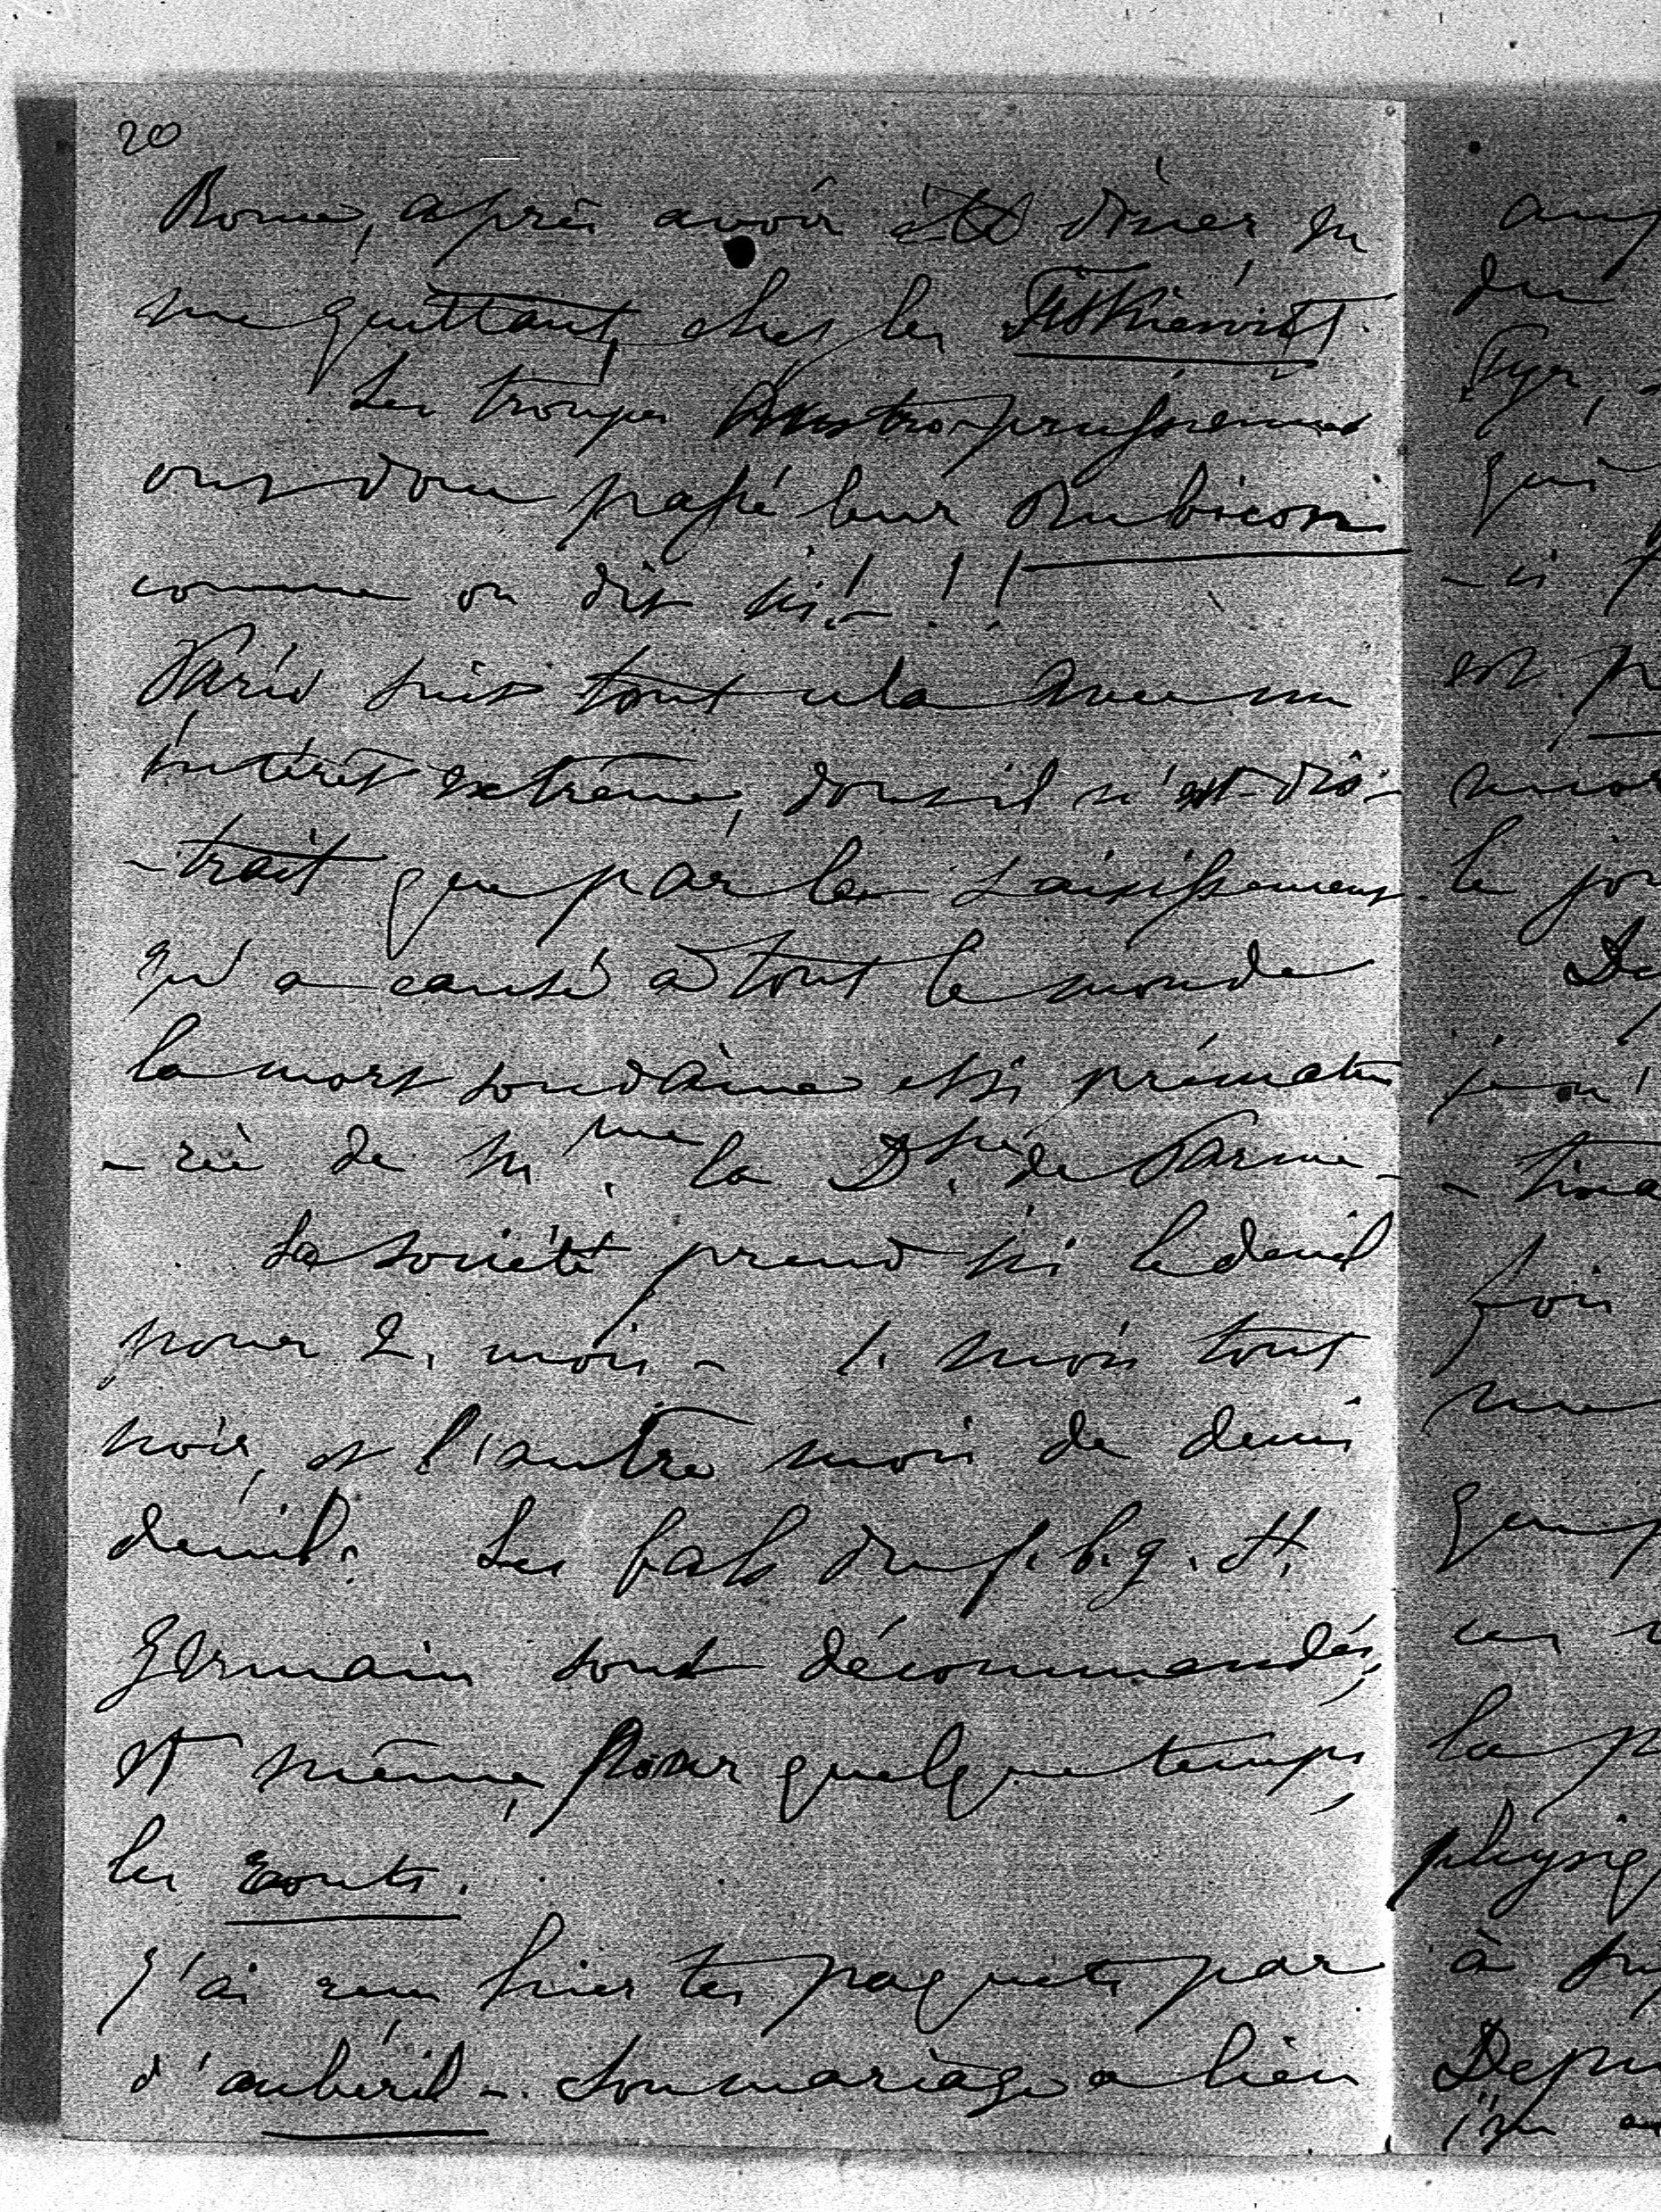 20
Rome, après avoir été dîner en
me quittant, chez les
Les troupes Austro-prussiennes
ont donc passé leur Rubicon
comme on dit ici!- ! !
Paris suit tout cela avec un
intérêt extrême, dont il n'est dis-
-trait que par le saisissement
qu'a causé à tout le monde
la mort soudaine et si prématu
-rée de Mme la Dsse de Parme-
La société prend ici le deuil
pour 2. mois - 1. mois tout
noir, et l'autre mois de demi
deuil. Les bals du f.b.g. St.
Germain sont décommandés,
et même, pour quelque temps,
les routs.
J'ai reçu hier tes paquets par
d'aubéril -. Son mariage a lieu
du
qui
-ci
est
le
De
-
fois
me
la
à
Depu